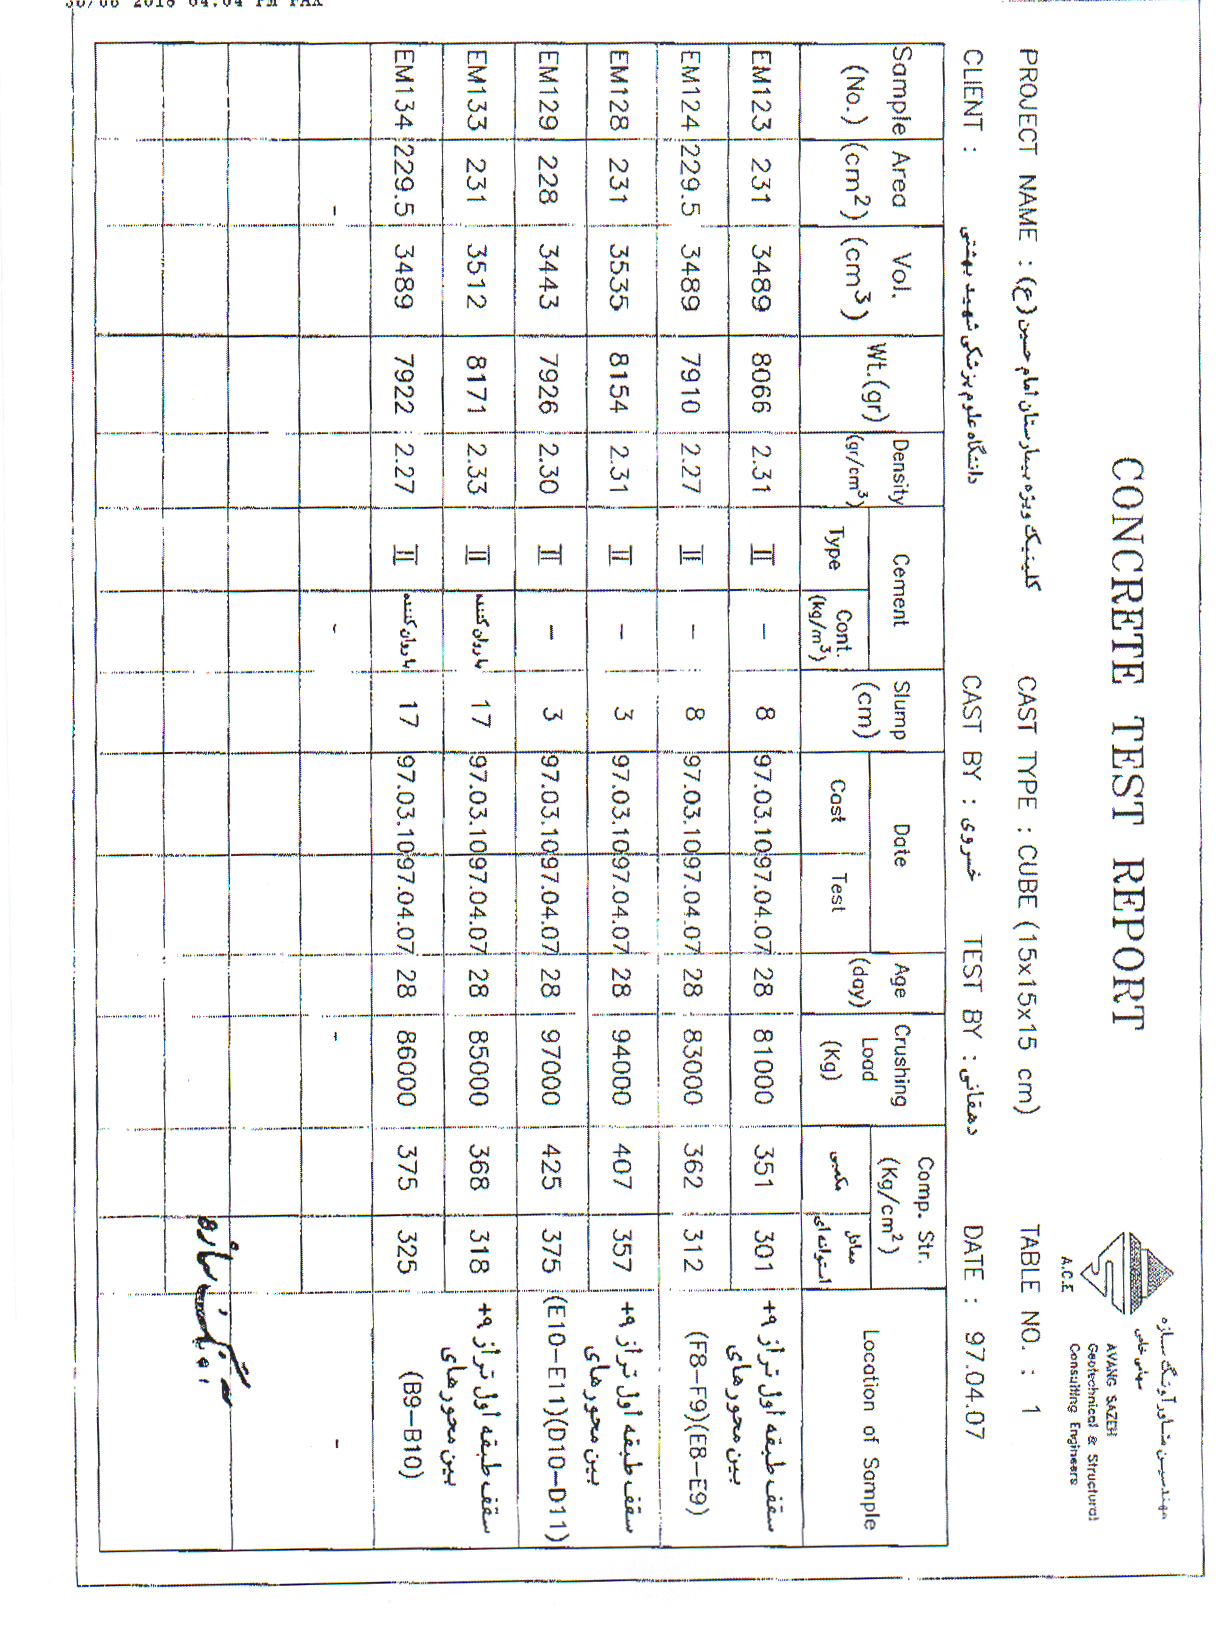 30/06 2018 04:04 PM FAX
CONCRETE TEST REPORT
مهندسین مشاور آونگ سازه
A.C.E
AVANG SAZEH
Geotechnical & Structural
Consulting Engineers
PROJECT NAME : کلینیک ویژه بیمارستان امام حسین (ع) CAST TYPE : CUBE (15x15x15 cm) TABLE NO. : 1
CLIENT : دانشگاه علوم پزشکی شهید بهشتی CAST BY : خسروی TEST BY : دهقانی DATE : 97.04.07
Sample (No.) Area (cm2) Vol. (cm3) Wt.(gr) Density (gr/cm3) Cement Type Cont. (kg/m3) Slump (cm) Date Cast Test Age (day) Crushing Load (Kg) Comp. Str. (Kg/cm2) مکعبی معادل استوانه ای Location of Sample
EM123 231 3489 8066 2.31 II - 8 97.03.10 97.04.07 28 81000 351 301 سقف طبقه اول تراز 9+
بین محورهای
EM124 229.5 3489 7910 2.27 II - 8 97.03.10 97.04.07 28 83000 362 312 (F8-F9)(E8-E9)
EM128 231 3535 8154 2.31 II - 3 97.03.10 97.04.07 28 94000 407 357 سقف طبقه اول تراز 9+
بین محورهای
EM129 228 3443 7926 2.30 II - 3 97.03.10 97.04.07 28 97000 425 375 (E10-E11)(D10-D11)
EM133 231 3512 8171 2.33 II با روان کننده 17 97.03.10 97.04.07 28 85000 368 318 سقف طبقه اول تراز 9+
بین محورهای
EM134 229.5 3489 7922 2.27 II با روان کننده 17 97.03.10 97.04.07 28 86000 375 325 (B9-B10)
- - - -